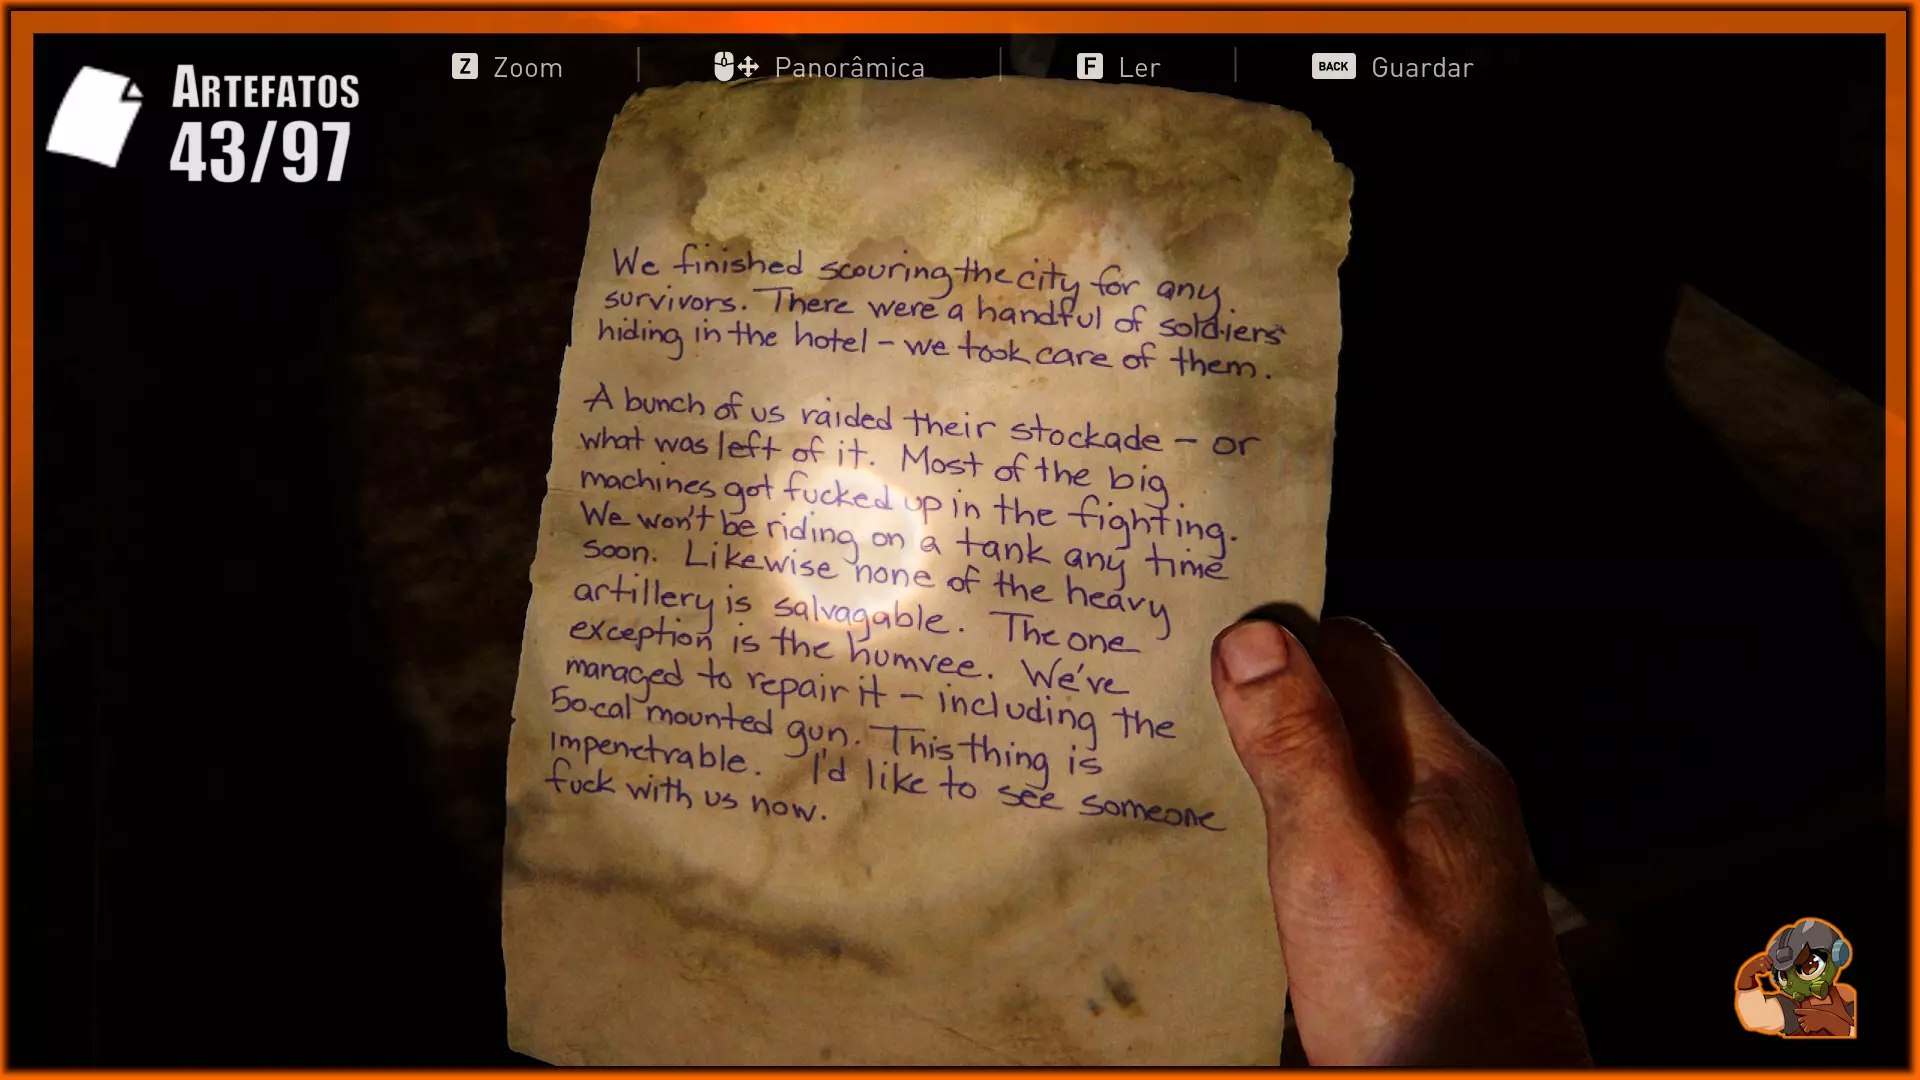 ARTEFATOS
43/97
Z Zoom
Panorâmica
F Ler
BACK Guardar
We finished scouring the city for any
survivors. There were a handful of soldiers
hiding in the hotel – we took care of them.
A bunch of us raided their stockade – or
what was left of it. Most of the big
machines got fucked up in the fighting.
We won't be riding on a tank any time
soon. Likewise none of the heavy
artillery is salvagable. The one
exception is the humvee. We've
managed to repair it – including the
50.cal mounted gun. This thing is
impenetrable. I'd like to see someone
fuck with us now.